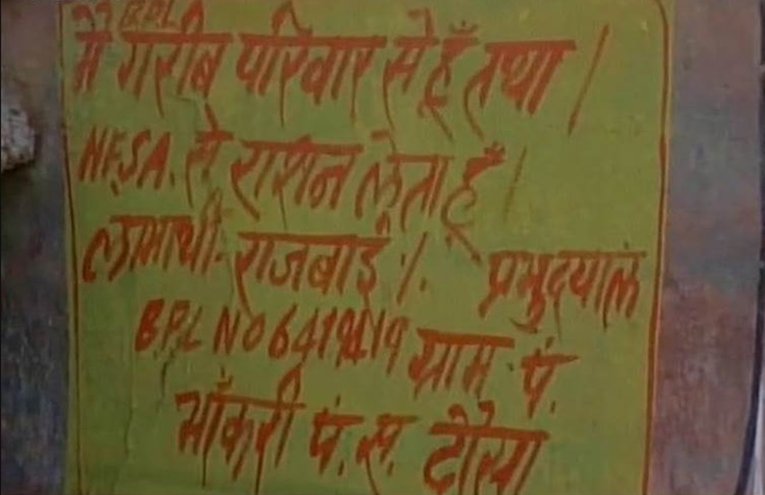 B.P.L
मै गरीब परिवार से हूँ तथा ।
N.F.S.A. से राशन लेता हूँ ।
लाभार्थी- राजबाई ।. प्रभुदयाल
B.P.L NO ग्राम पं.
भाँकरी पं. स. दौसा